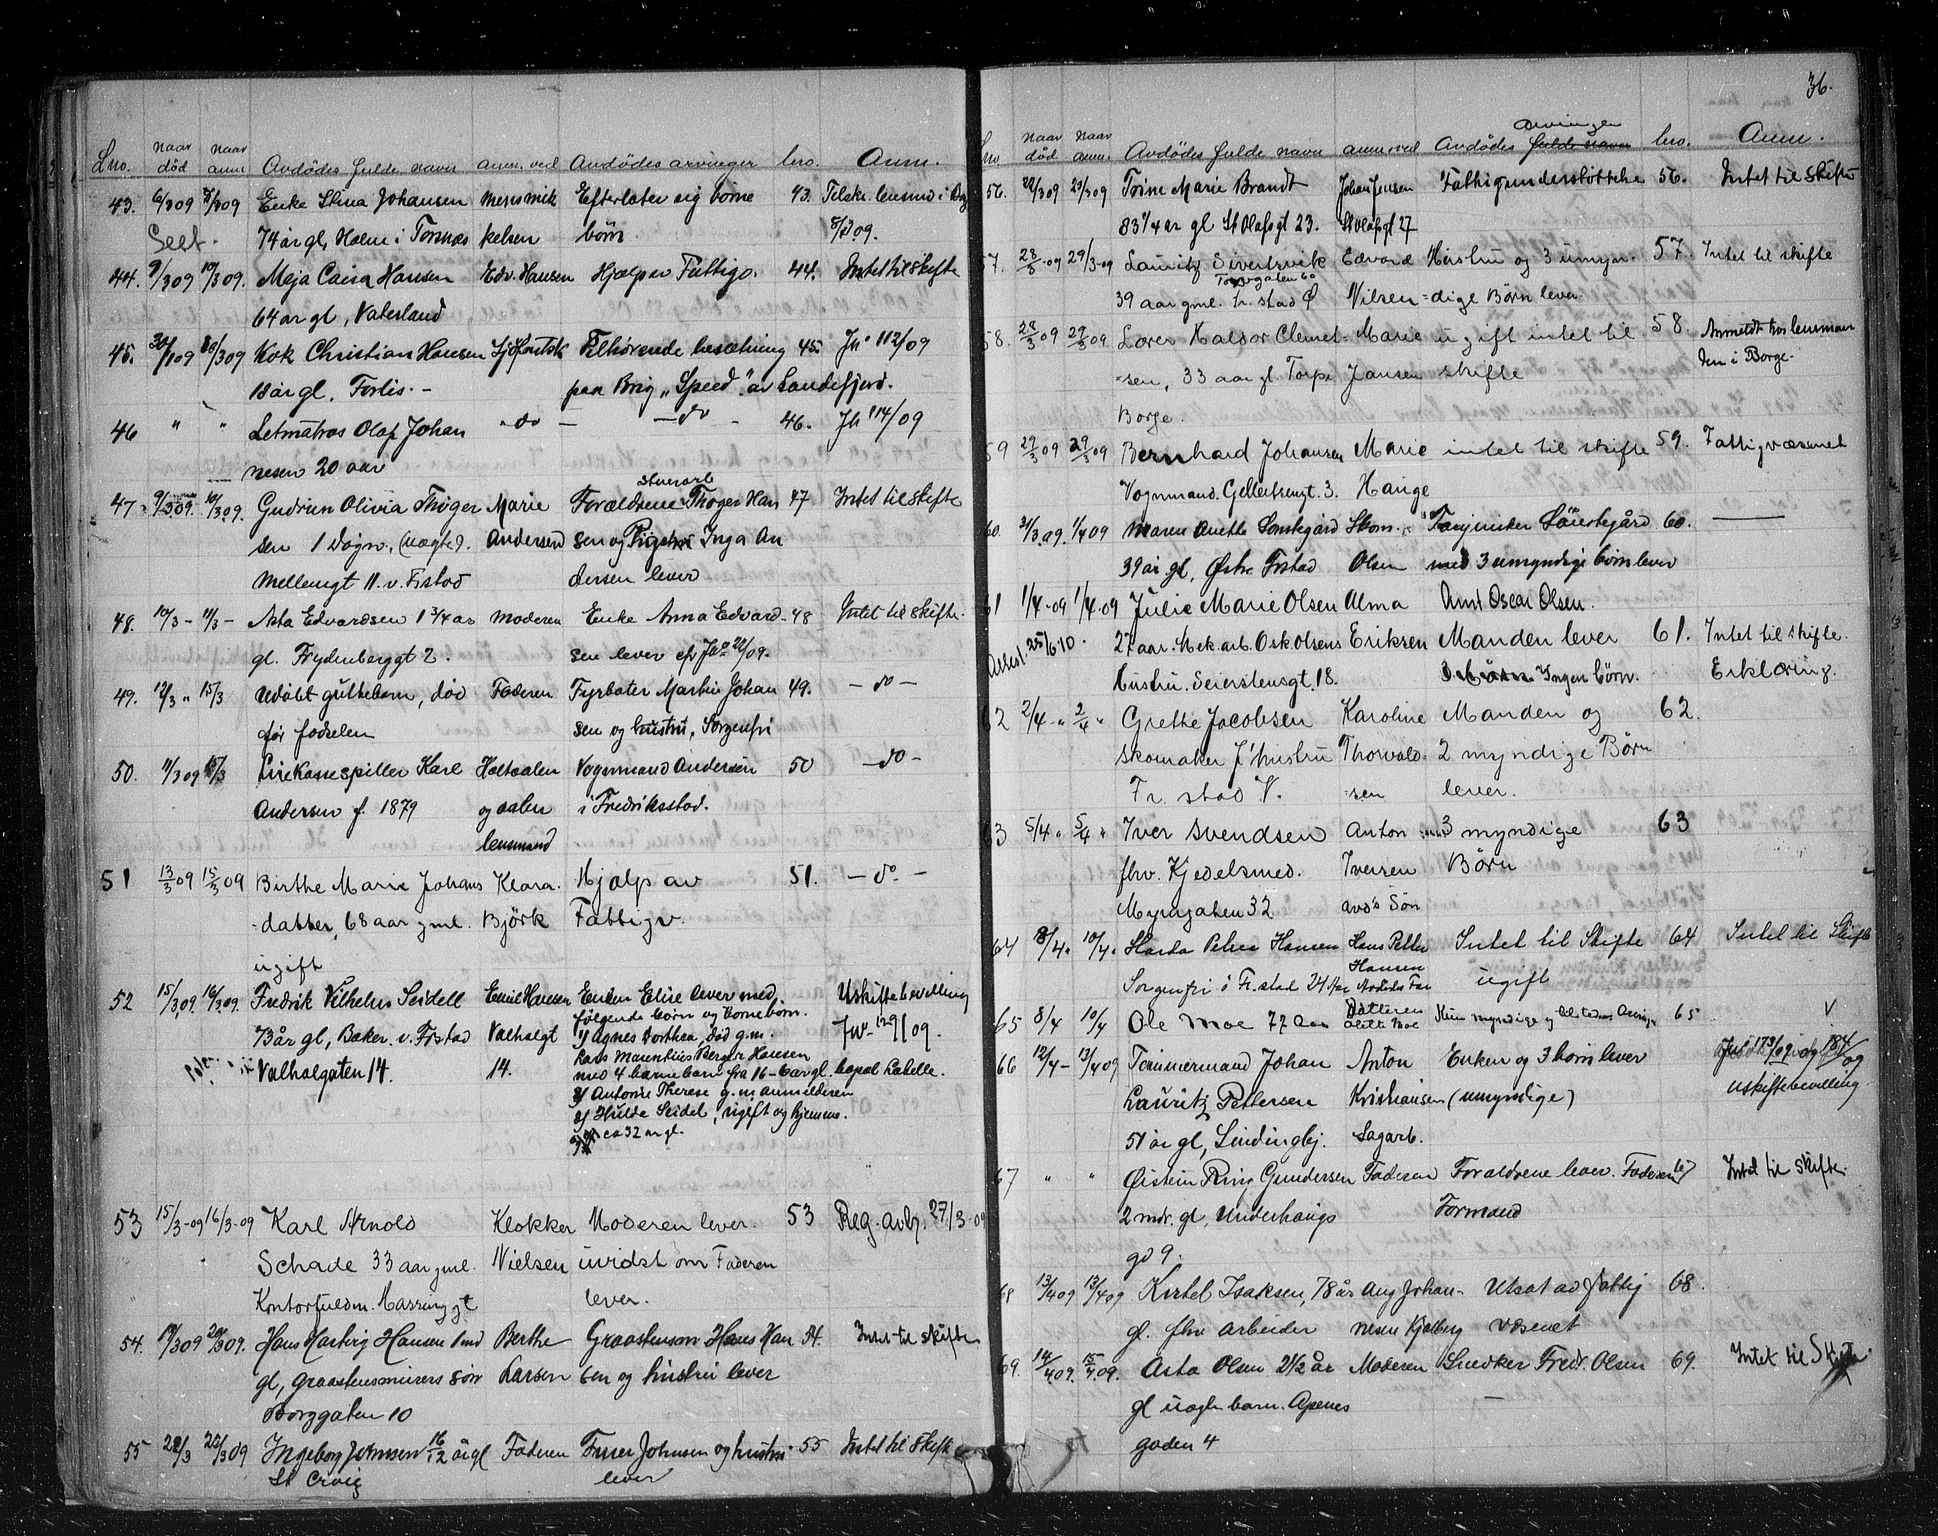 36.
Lno. naar død naar anm. Avdødes fulde navn anm. ved Avdødes arvinger bno. Anm.
43. 6/3 09 8/3 09 Enke Stina Johansen Efterlater sig børne 43. Tilskr. lensmd i
74 år gl, Holm i Torsnæs kelsen børn 8/3 09.
44. 9/3 09 10/3 09. Maja Caisa Hansen Edv. Hansen Hjælp av Fattigv. 44. Intet til skifte
64 ar gl, Vaterland
45. 30/1 09 20/3 09 Kok Christian Hansen Sjöforkl Tilhørende besætning 45. Jn 112/09
18 år gl. Fortis. - paa Brig „Speed". av Sandefjord.
46 " " Letmatros Olaf Johan - do - - do - 46. Jn 114/09
nesen 20 aar
47 9/3 09. 10/3 09. Gudrun Olivia Thøger Marie Forældrene stenarb Thøger Han 47 Intet til skifte
sen 1 Døgn. (uægte). Andersen sen og Pigen Inga An
Mellemgt 11. v. F.stad dersen lever
48. 10/3 - 11/3 - Asta Edvardsen 1 3/4 ar Moderen Enke Anna Edvard- 48 Intet til skifte.
gl. Frydenberggt 2. sen lever
49. 12/3 " 15/3 Udøbt guttebarn, død Faderen Fyrbøter Martin Johan 49. - do -
før fødselen sen og hustru, Sorgenfri
50. 11/3 09 15/3 Lirekassespiller Karl Holtaalen Vognmand Andersen 50 - do -
Andersen f. 1879 og aalen i Fredriksstad.
lensmand
51 13/3 09 15/3 09 Birthe Marie Johans Klara. Hjælp av 51. - do. -
-datter, 68 aar gml. Björk Fattigv.
ugift
52 15/3 09. 16/3 09. Fredrik Vilhelm Seidell Emil Hansen Enken Elise lever med Uskiftebevilling
følgende børn og børnebørn.
73 år gl, Baker. v. F.stad Valhalgt 1/ Agnes Dorthea, død g.m. Jnr 129/09.
Valhalgaten 14. 14. Lars Maurithius Berger Hansen
med 4 barnebarn fra 16-6 ar gl.
2/ Antonie Therese g.m. anmelderen
3/ Hulda Seidel, ugift og hjemme.
ca 32 ar gl.
53 15/3-09 16/3-09 Karl Arnold Klokker Moderen lever. 53 Reg. avb. 27/3-09
Schade 33 aar gml. Nielsen uvidst om Faderen
Kontorfuldm. lever.
54. 19/3 09 20/3 09. Hans Hartvig Hansen 1 md Berthe Graastensm Hans Han 54. Intet til skifte
gl, graastensmurers søn Larsen sen og hustru lever
Borggaten 10
55 22/3 25/3 09 Ingeborg Johnsen 16/12 år gl Faderen Johnsen og hustru 55 Intet til skifte
St Croix lever
Lno. naar død naar anm. Avdødes fulde navn anm. ved Avdødes arvinger fulde navn bno. Anm.
56. 28/3 09 29/3 09 Trine Marie Brandt Johan Jensen Fattigunderstöttelse 56. Intet til skifte
83 1/4 ar gl St Olafsgt 23. St Olafsgt 27
57. 28/3-09 29/3-09 Lauritz Sivertsvik Edvard Hustru og 3 umyn- 57. Intet til skifte
Torvegaten 60
39 aar gml. Fr.stad Ø Nilsen =dige Børn lever.
58. 28/3 09 29/3 09. Lærer Haldor Clemet- Marie ugift intet til 58. Anmeldt hos lensman
=sen, 33 aar gl Torpe Jansen skifte den i Borge.
Borge.
59 29/3 09 29/3 09 Bernhard Johansen Marie intet til skifte 59. Fattigvæsenet
Vognmand. Gellertsengt. 3. Hauge
60. 31/3.09. 1/4 09 Maren Anette Skom. 60. ——
39 år gl, Østre Frstad Olsen med 3 umyndige børn lever
61 1/4-09 1/4-09 Julie Marie Olsen Alma Arnt Oscar Olsen.
Attest. 25/6 10 27 aar. Mek. arb. Osk Olsens Eriksen Manden lever 61. Intet til skifte.
Hustru. Seierstensgt. 18. Ingen börn. Erklæring.
62 2/4-" 2/4 " Grethe Jacobsen Karoline Manden og 62.
skomaker J' hustru Thorvald- 2 myndige Børn
Fr. stad V. sen lever.
63 5/4 " 5/4 " Iver Svendsen Anton 3 myndige 63
fhv. Kjedelsmed. Iversen Børn
Myragaten 32 avd's Søn
64 8/4. 10/4. Petrea Hansen Hans Petter Intet til Skifte 64 Intet til Skifte
Hansen
Sorgenfri ö Fr.stad 24 Aar Avdødes Far ugift
65 8/4 10/4 Ole Moe 77 Aar Datteren Kun myndige og tilstede Arving. 65 v
Moe
66 12/4- 13/4 09 Tømmermand Johan Anton Enken og 3 børn lever Jnl 173/09 og 184/09
Lauritz Pettersen Kristiansen (umyndige) uskiftebevilling
51 år gl, Lindingbj. Sagarb.
67 " " Øistein Ring Gundersen Faderen Forældrene lever. Faderen 67 Intet til skifte.
2 mdr. gl, Underhaugs Formand
gd 9.
68 13/4 09 13/4 09 Kirtel Isaksen, 78 år Aug Johan- Utsat ad fattig 68.
gl. fhv arbeider nesen Kjølberg væsenet
69. 14/4 09. 15/4.09. Asta Olsen 2 1/2 år Moderen Snedker Fredr. Olsen 69. Intet til Skifte
gl uægte barn. Apenes —
gaden 4